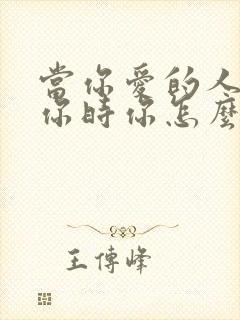 當你愛的人
你時你怎麼
王傅峰